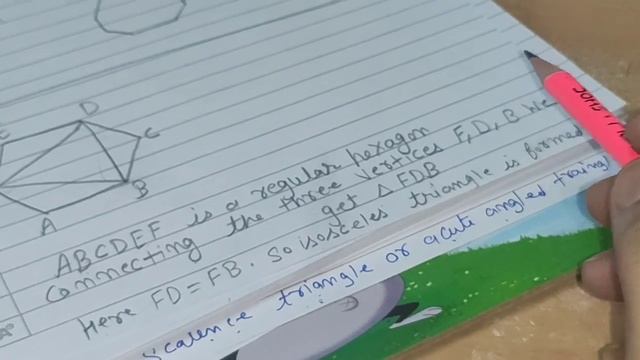 D
E
C
B
A
ABCDEF is a regular hexagon
connecting the three vertices F, D, B we
get △ FDB
Here FD = FB. So isosceles triangle is formed
scalence triangle or acute angled traingl
JOHD